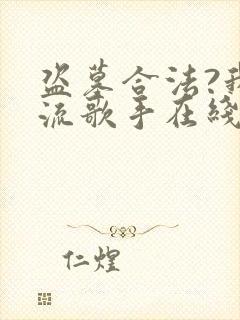 盗墓合法?我
流歌手在线
仁煌